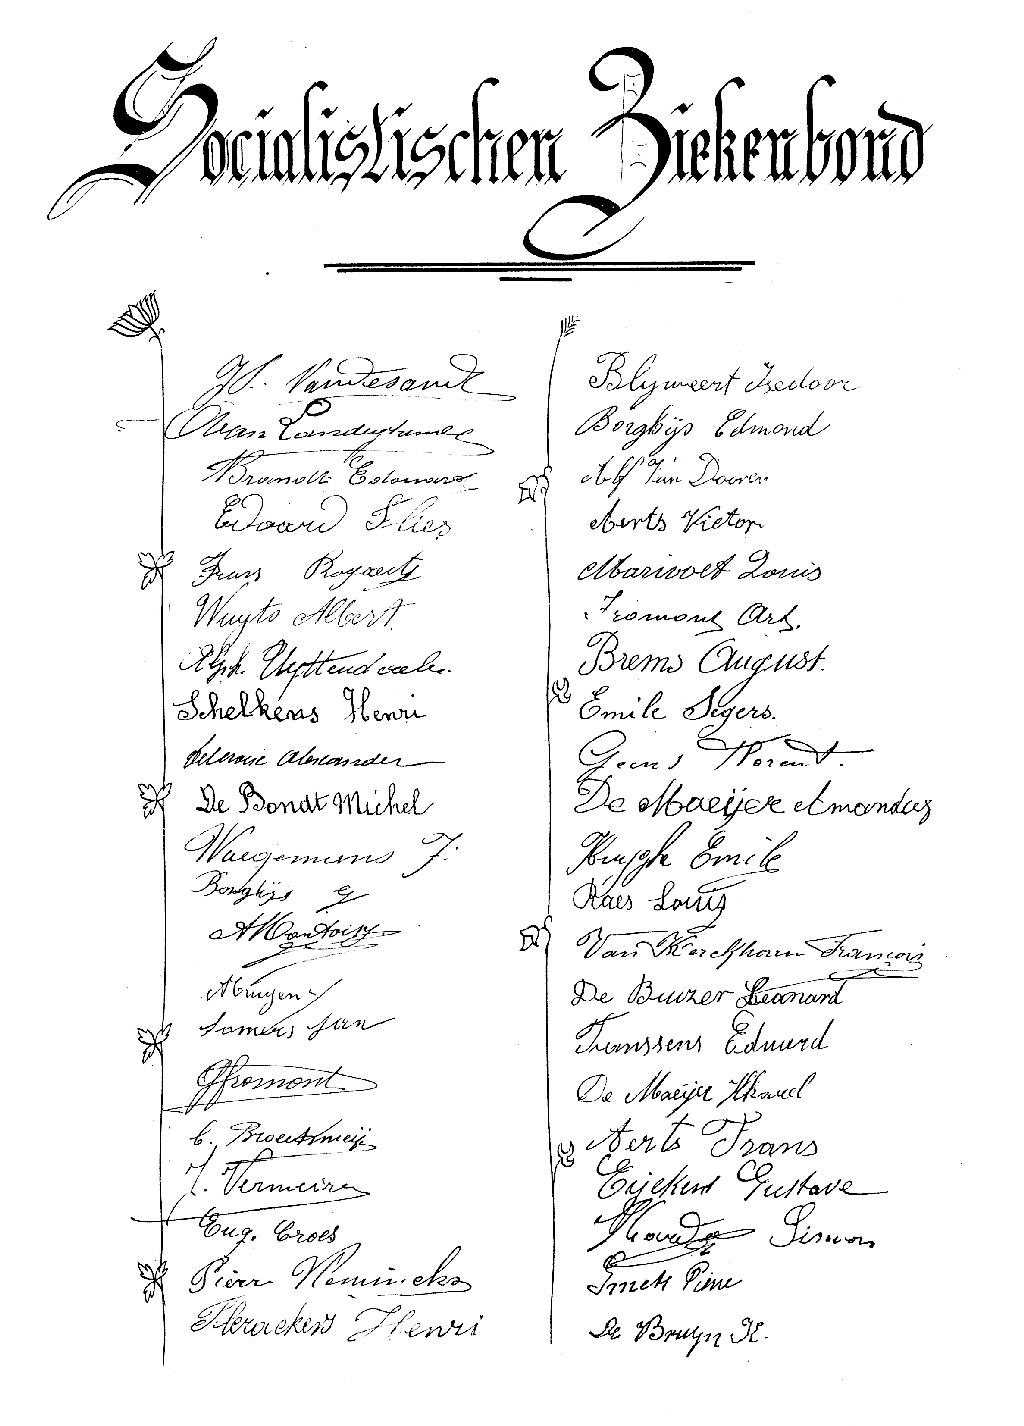 Socialistischen Ziekenbond
Js. Vandesandt
Brandt Edouard
Edoard Slies
Frans Bogaerts
Wuyts Albert
Alph. Uyttendaele.
Schelkens Henri
Delcroix Alexander
De Bondt Michel
Waegemans J.
Borghijs G
Somers Jan
Gfromont
C. Broeckmeijer
J. Vermeire
Eug. Croes
Pierr
Henri
Blijweert Isedoor
Borghijs Edmond
Alf Van Dooren
Aerts Victor
Marivoet Louis
Fromont Ard.
Brems August.
Emile Segers.
Geens Florent.
De Maeijer Amandus
Emile
Raes Louis
Van Kerckhoven Francois
De Buizer Leonard
Janssens Eduard
De Maeijer Karel
Aerts Frans
Eijckens Gustave
Simon
Smets Pierre
De Bruyn K.